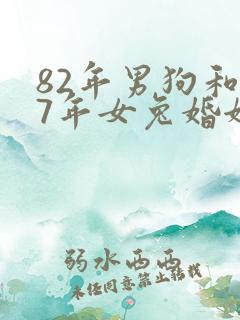 82年男狗和
7年女兔婚
弱水西西
未经同意禁止转载